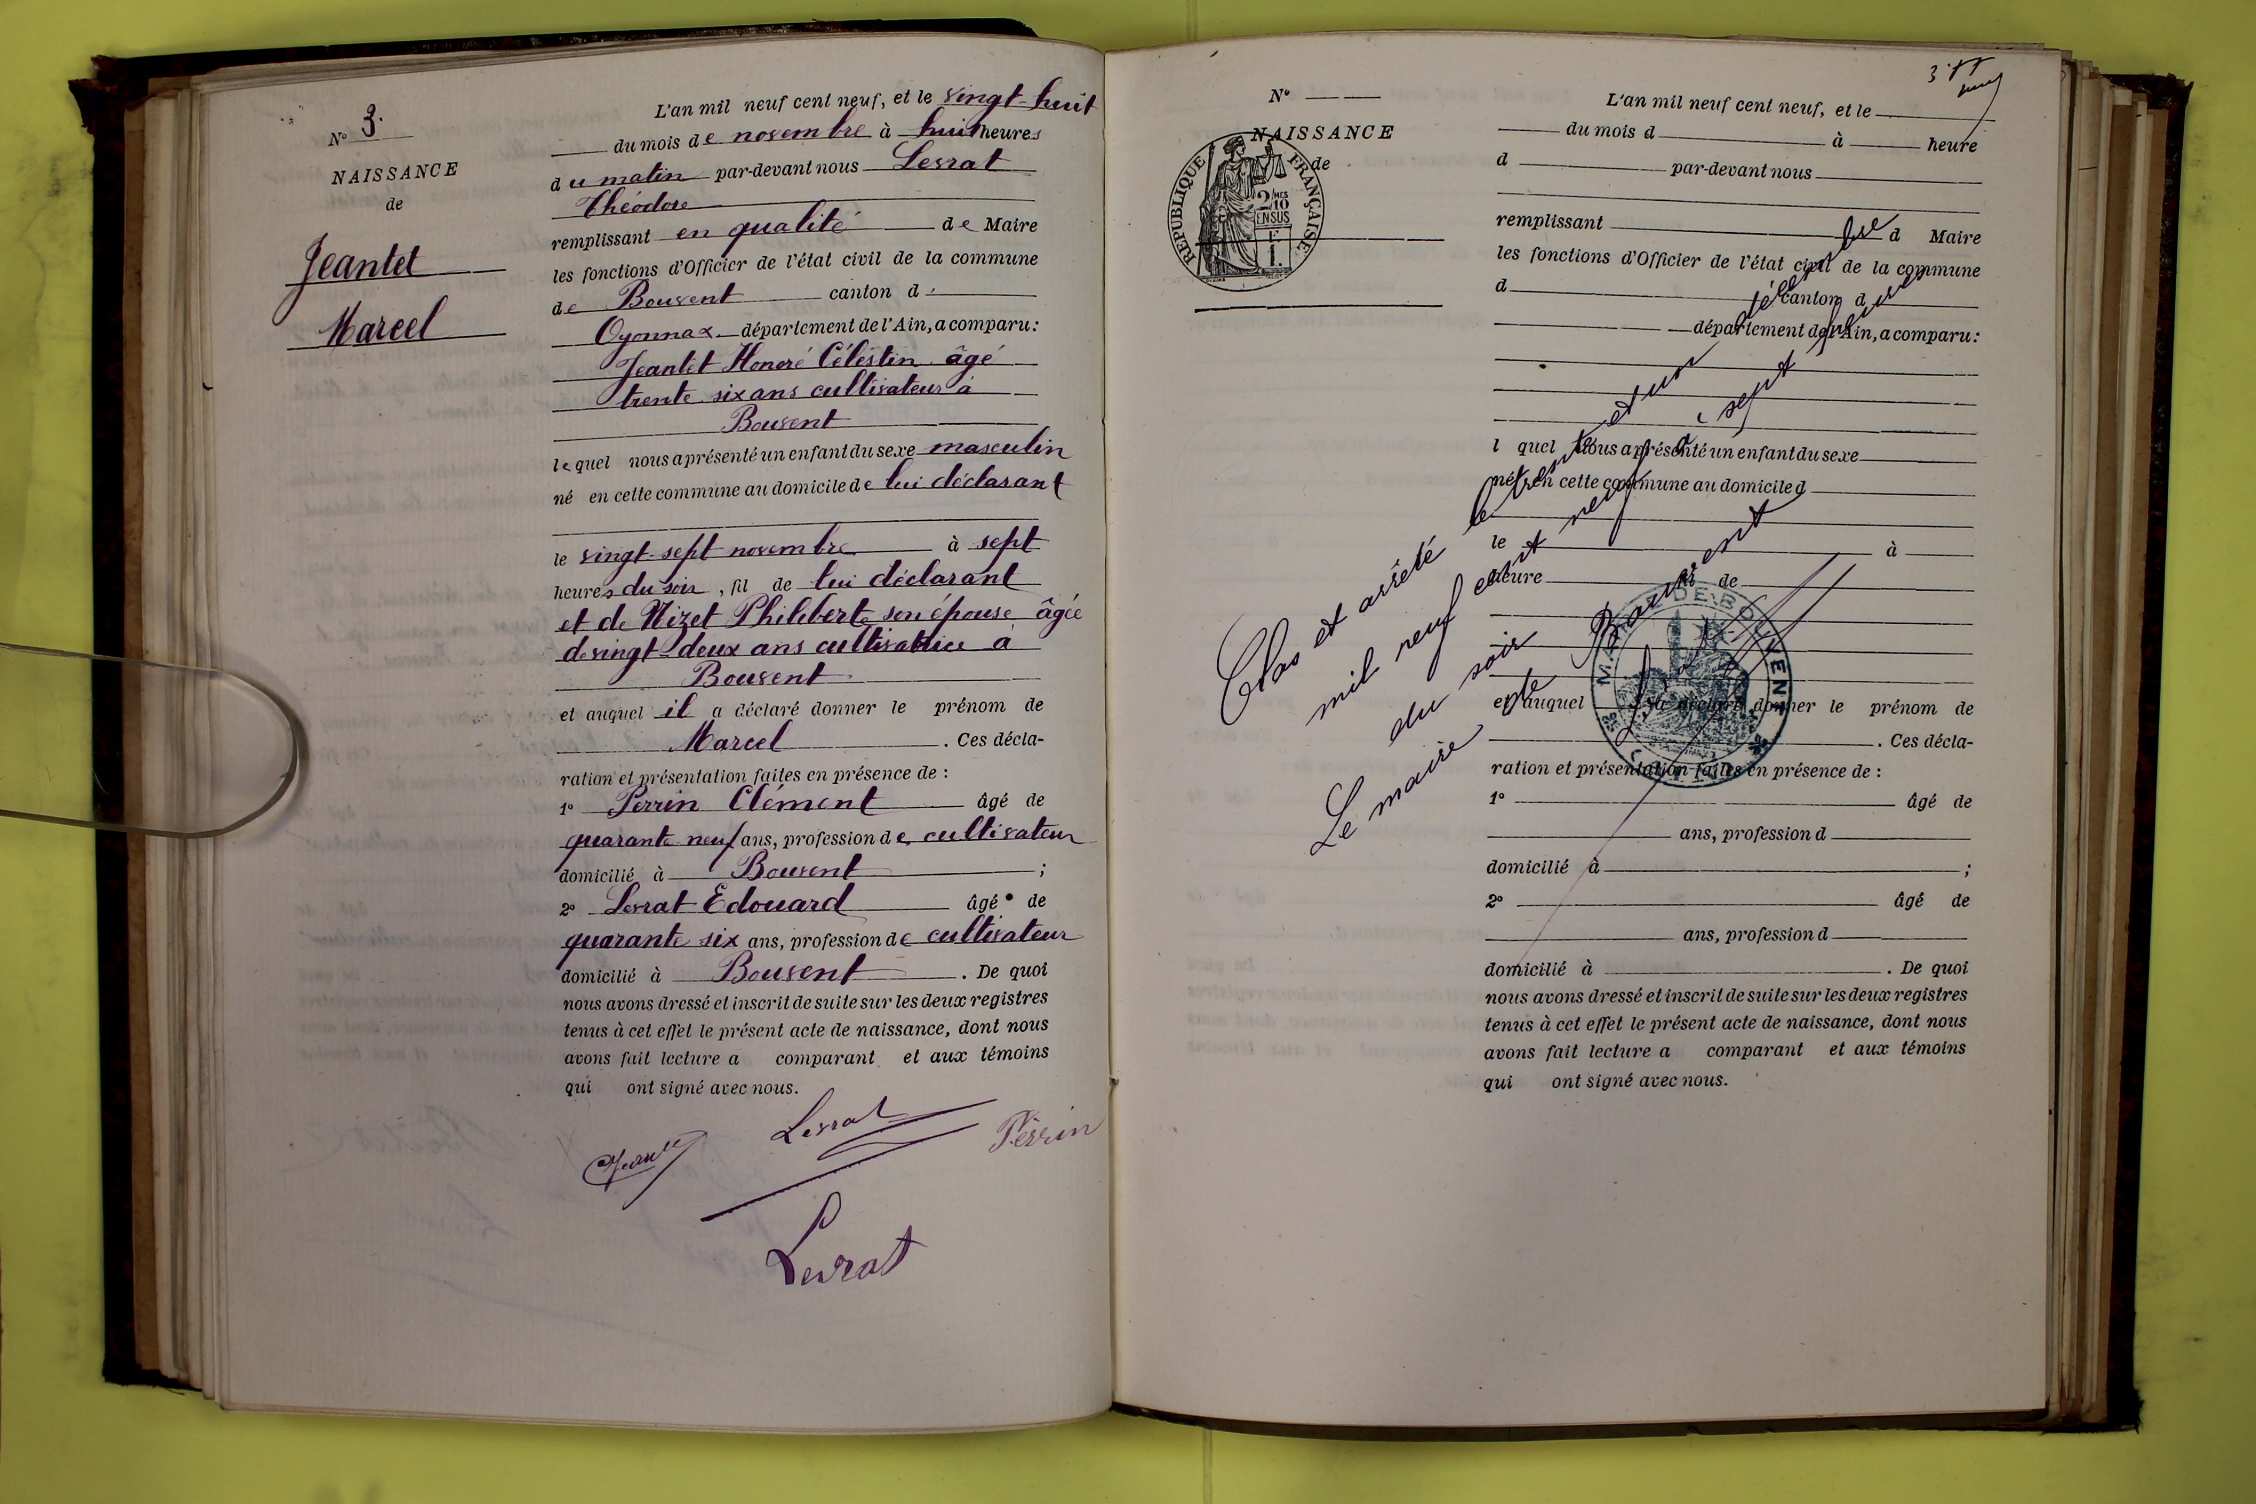 N° 3.
NAISSANCE
de
Jeantet
Marcel
L'an mil neuf cent neuf, et le vingt-huit
du mois de novembre à huit heures
du matin par-devant nous Levrat
Théodore
remplissant en qualité de Maire
les fonctions d'Officier de l'état civil de la commune
de Bouvent canton d
Oyonnax département de l'Ain, a comparu:
Jeantet Honoré Célestin âgé
trente six ans cultivateur à
Bouvent
lequel nous a présenté un enfant du sexe masculin
né en cette commune au domicile de lui déclarant
le vingt-sept novembre à sept
heures du soir, fil de lui déclarant
et de Nizet Philiberte son épouse âgée
de vingt-deux ans cultivatrice à
Bouvent
et auquel il a déclaré donner le prénom de
Marcel. Ces décla-
ration et présentation faites en présence de:
1° Perrin Clément âgé de
quarante neuf ans, profession de cultivateur
domicilié à Bouvent;
2° Levrat Edouard âgé de
quarante six ans, profession de cultivateur
domicilié à Bouvent. De quoi
nous avons dressé et inscrit de suite sur les deux registres
tenus à cet effet le présent acte de naissance, dont nous
avons fait lecture a comparant et aux témoins
qui ont signé avec nous.
Levrat
Perrin
Jeantet
Levrat
N°
NAISSANCE
de
REPUBLIQUE FRANÇAISE
2/10
EN SUS
F.
1.
L'an mil neuf cent neuf, et le
du mois d à heure
d par-devant nous
remplissant d Maire
les fonctions d'Officier de l'état civil de la commune
d canton d
département de l'Ain, a comparu:
l quel nous a présenté un enfant du sexe
né en cette commune au domicile d
le à
heure fil de
et auquel a déclaré donner le prénom de
. Ces décla-
ration et présentation faites en présence de:
1° âgé de
ans, profession d
domicilié à ;
2° âgé de
ans, profession d
domicilié à . De quoi
nous avons dressé et inscrit de suite sur les deux registres
tenus à cet effet le présent acte de naissance, dont nous
avons fait lecture a comparant et aux témoins
qui ont signé avec nous.
Clos et arrêté le trente et un décembre
mil neuf cent neuf à sept heures
du soir
Le maire de Bouvent
Levrat
MAIRIE DE BOUVENT
(AIN)